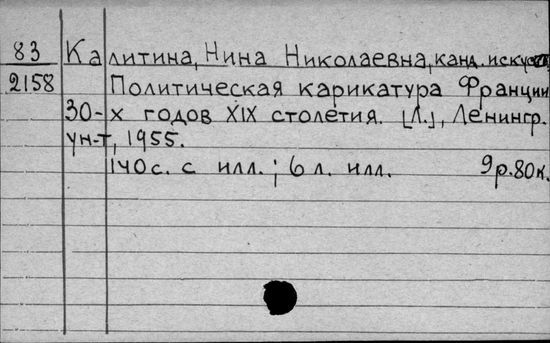 83 Калитина, Нина Николаевна, канд. искус
2158 Политическая карикатура Франции
30-х годов XIX столетия. [Л.], Ленингр.
ун-т, 1955.
140 с. с илл.; 6 л. илл. 9 р. 80 к.